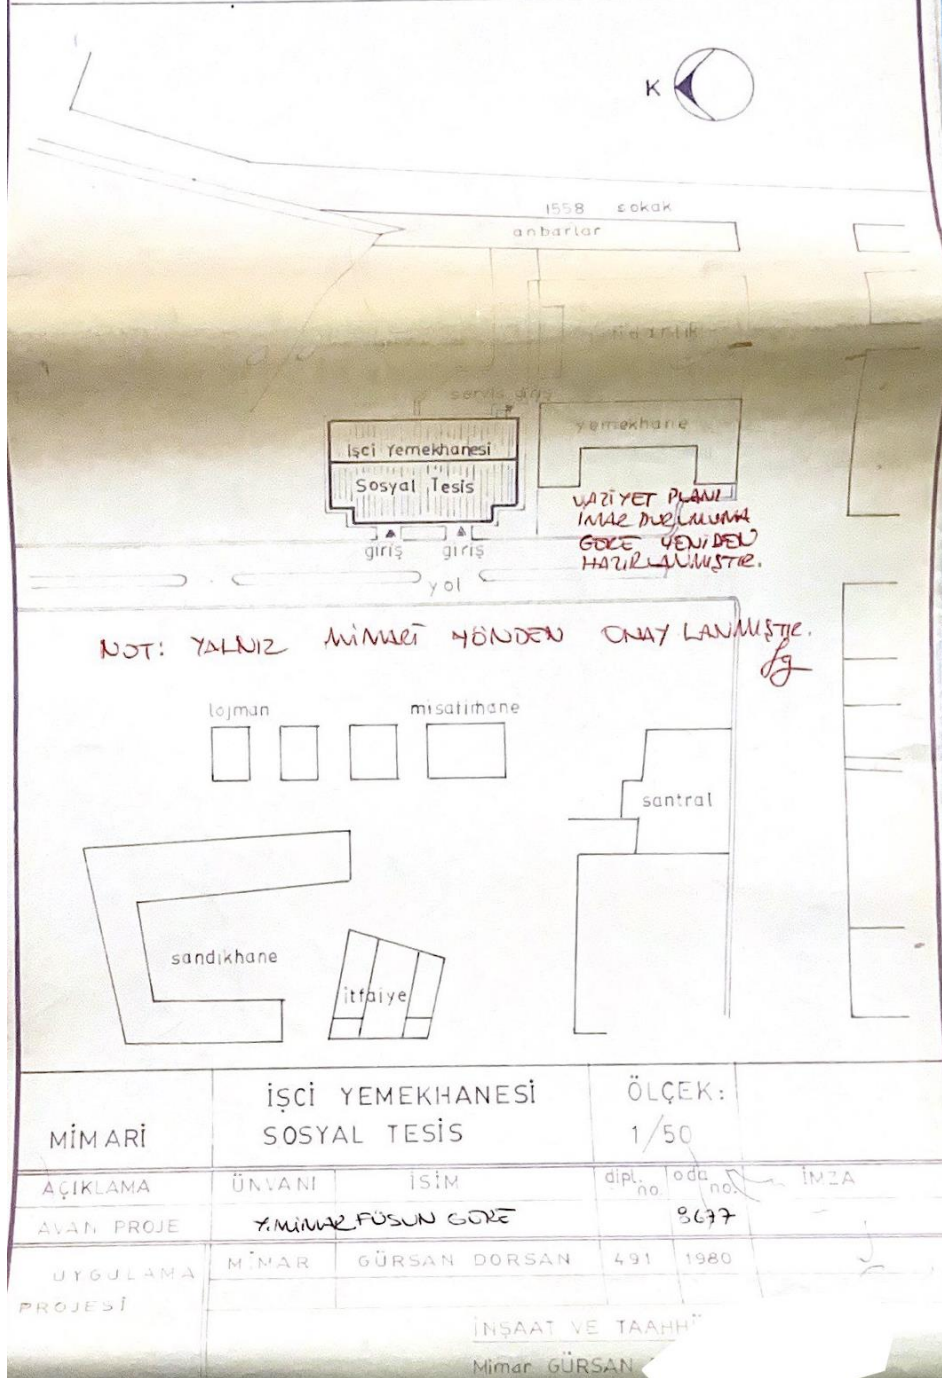 K
1558 sokak
anbarlar
servis giriş
yemekhane
İşci Yemekhanesi
Sosyal Tesis
VAZİYET PLANI
İMAR DURUMUNA
GÖRE YENİDEN
HAZIRLANMIŞTIR.
giriş giriş
yol
NOT: YALNIZ MİMARİ YÖNDEN ONAYLANMIŞTIR.
lojman misafirhane
santral
sandıkhane
itfaiye
MİMARİ
İŞCİ YEMEKHANESİ
SOSYAL TESİS
ÖLÇEK:
1/50
AÇIKLAMA ÜNVANI İSİM dipl. no. oda no. İMZA
AVAN PROJE Y.MİMAR FÜSUN GÖRE 9677
UYGULAMA PROJESİ MİMAR GÜRSAN DORSAN 491 1980
İNŞAAT VE
Mimar GÜRSAN